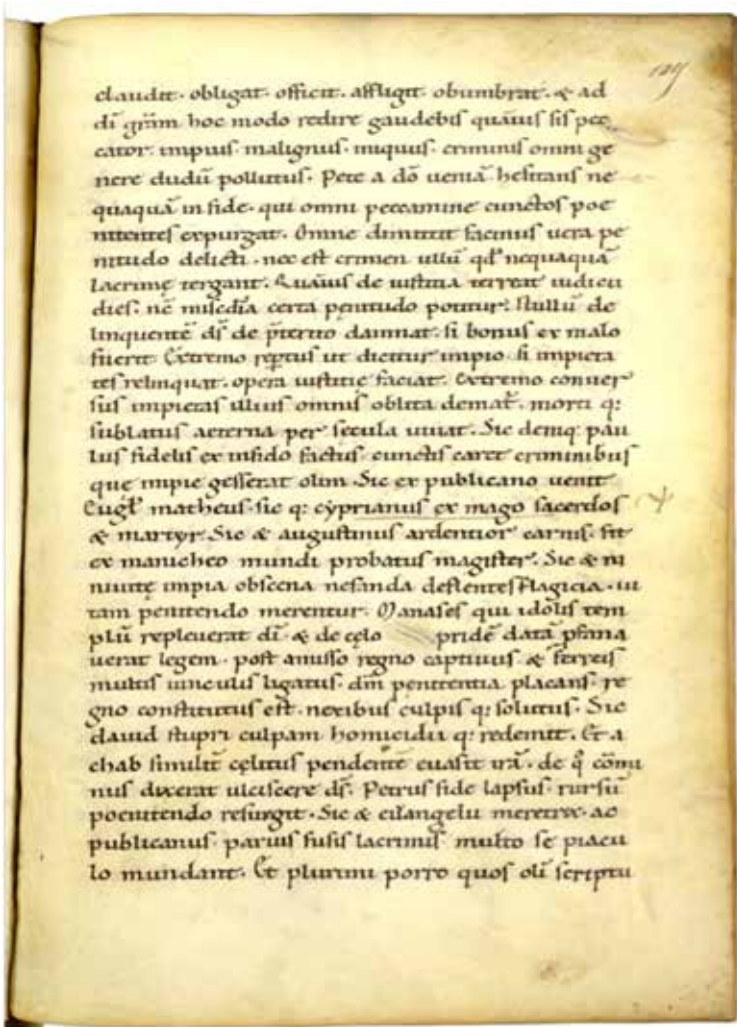 claudit · obligat · officit · affligit · obumbrat · & ad
dī grām hoc modo redire gaudebis quāuis sis pec
cator · impius · malignus · iniquus · criminis omni ge
nere dudū pollutus · Pete a dō ueniā hesitans ne
quaquā in fide · qui omni peccamine cunctos poe
nitentes expurgat · Omne dimittit facinus uera pe
nitudo delicti · nec est crimen ullū qđ nequaquā
lacrimę tergant · Quāuis de iustitia terreat iudicii
dies · misedīa certa penitudo potitur · Nullū de
linquentē dſ de p̄terito damnat · si bonus ex malo
fuerit · Extremo ut dicitur impio si impieta
tes relinquat · opera iustitię faciat · Extremo conuer
sus impietas illius omnis oblita · morti q:
sublatus aeterna per secula uiuat · Sic deniq: pau
lus fidelis ex infido factus · cunctis caret criminibus
que impie gesserat olim · Sic ex publicano uenit
Eugł matheus · sic q: cyprianus ex mago sacerdos
& martyr · Sic & augustinus ardentior carnis · fit
ex manicheo mundi probatus magister · Sic & ni
niuitę impia obscena nefanda deflentes flagicia · ui
tam penitendo merentur · Manases qui idolis tem
plū repleuerat dī · & de cęlo pridē datā pfana
uerat legem · post amisso regno captiuus & ferreis
multis uinculis ligatus · dm̄ penitentia placans · re
gno constitutus est · nexibus culpis q: solutus · Sic
dauid stupri culpam homicidii q: redemit · Et a
chab cęlitus pendentē euasit irā · de q̊ cōmi
nus dixerat ulciscere dſ · Petrus fide lapsus · rursū
poenitendo resurgit · Sic & euangelii meretrix · ac
publicanus · paruis fusis lacrimis multo se piacu
lo mundant · Et plurimi porro quos olī scriptu